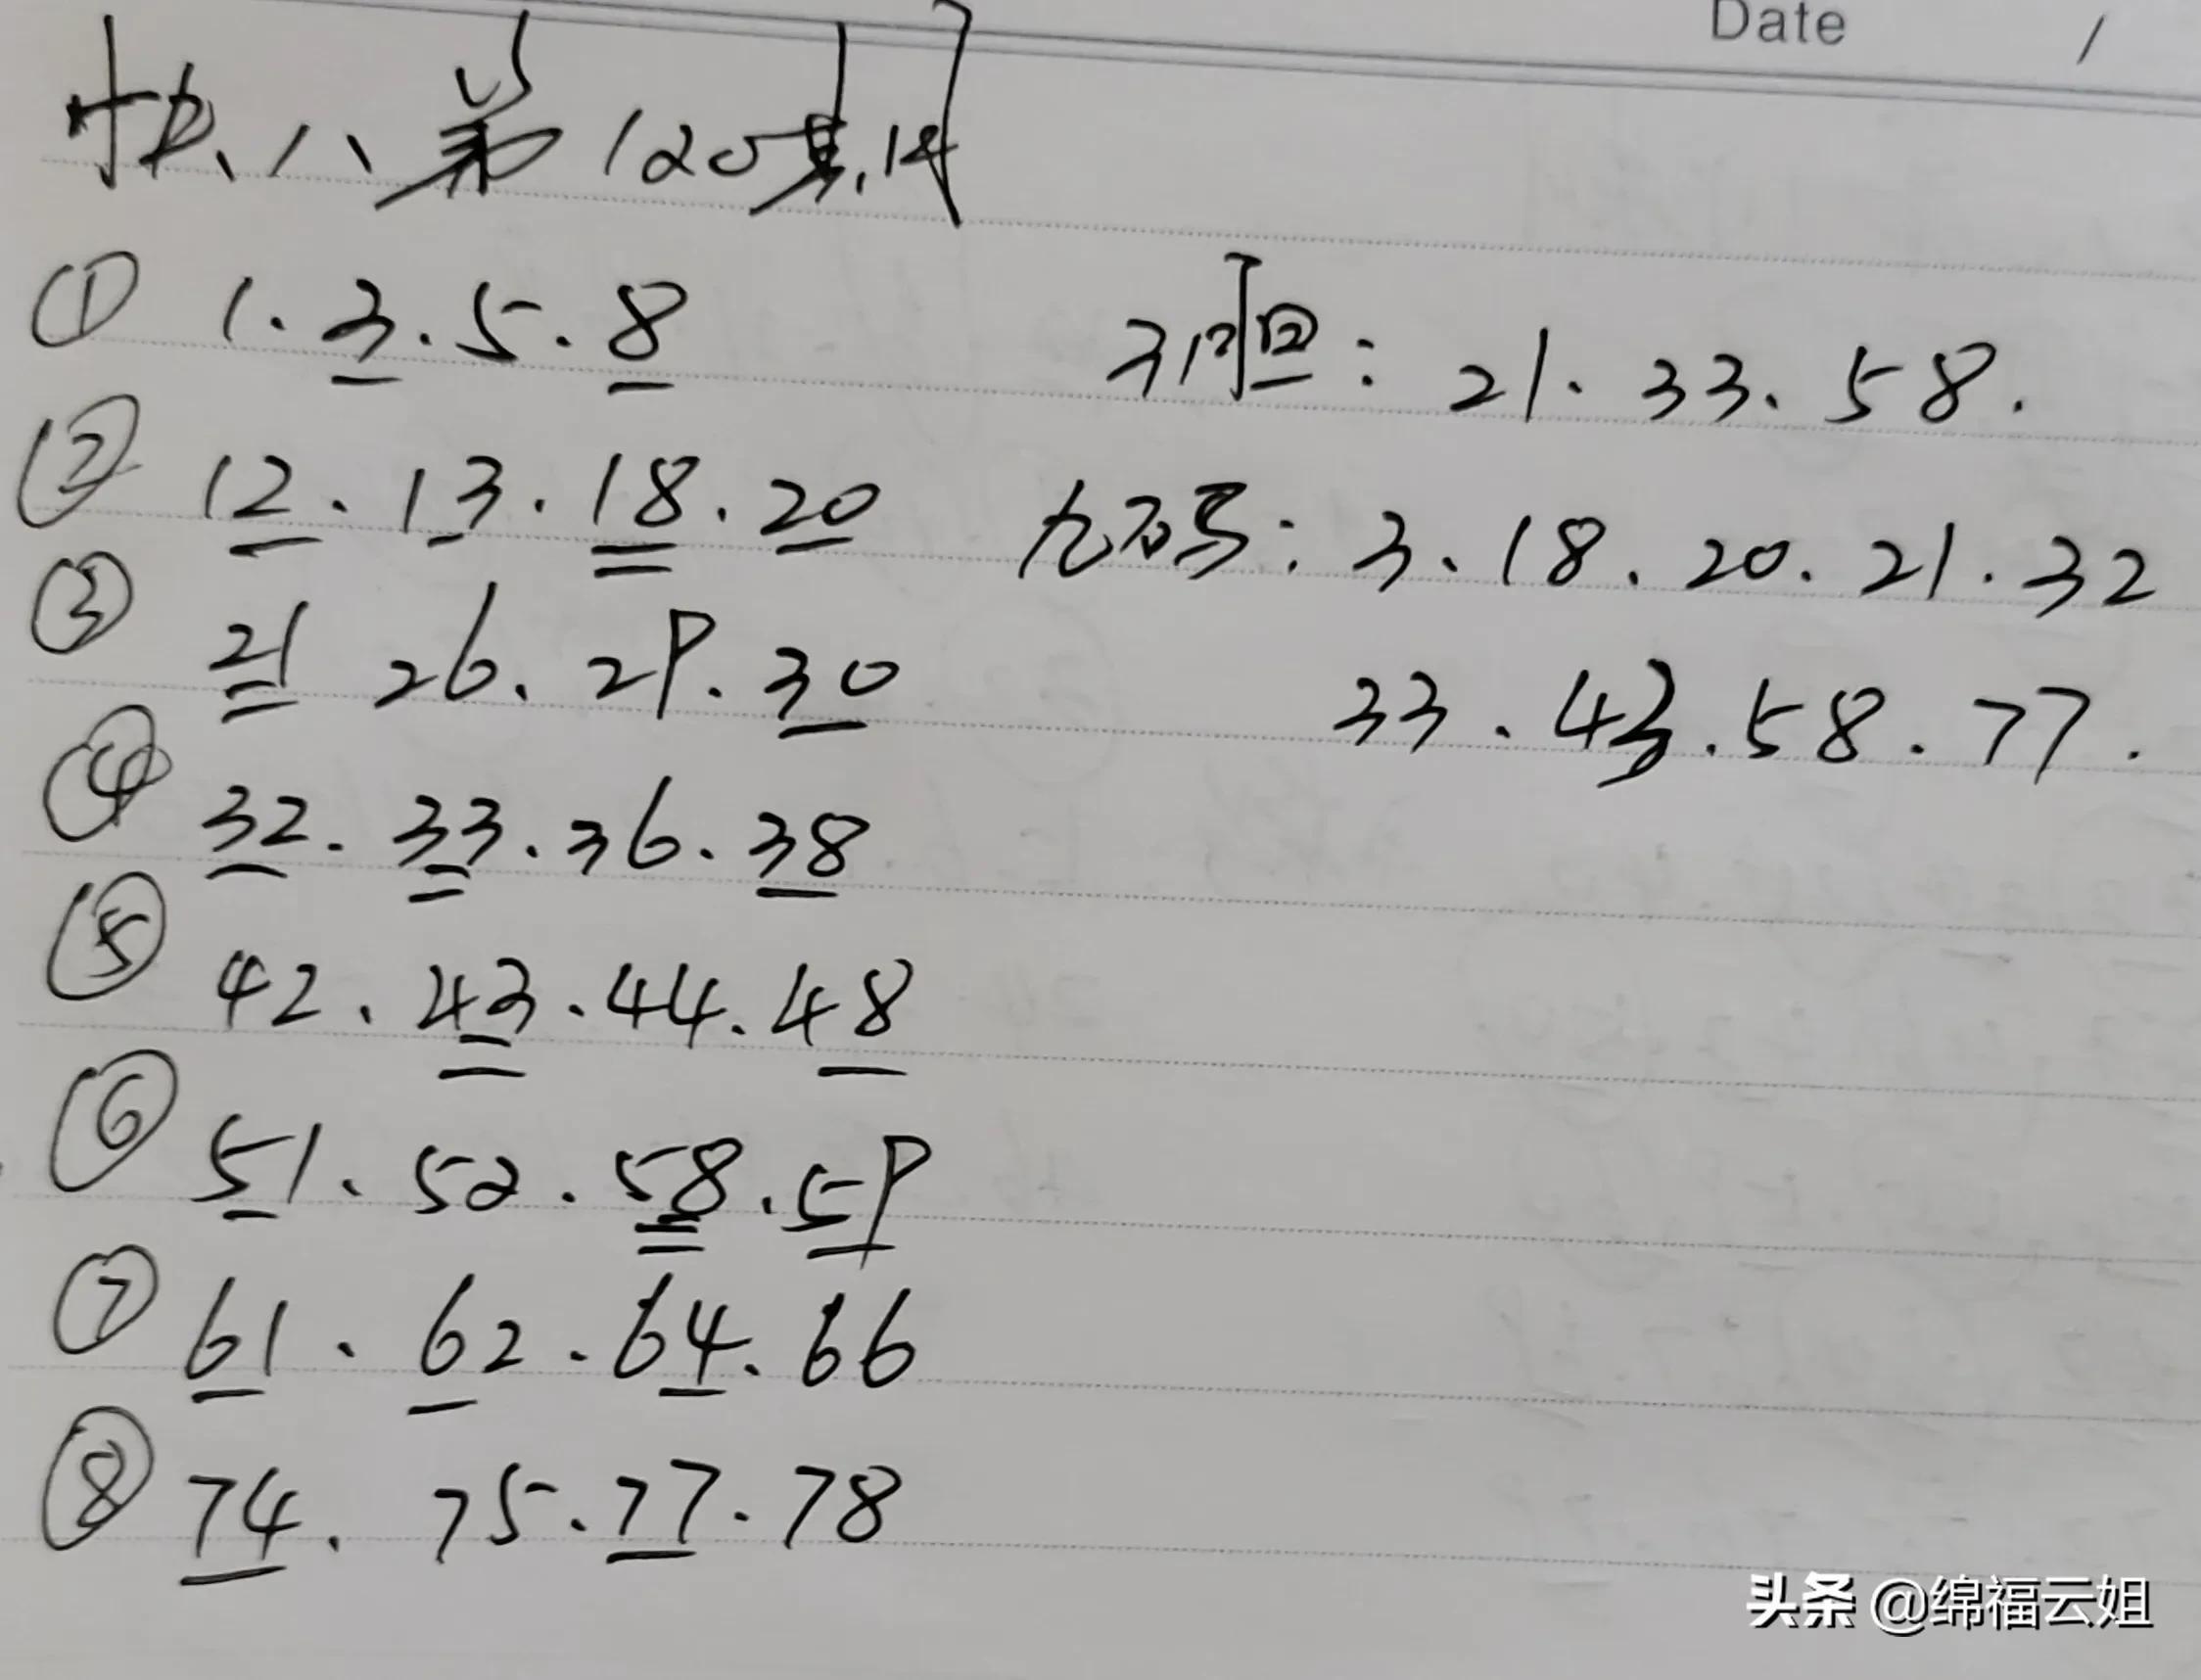 Date /
快八第120期
① 1.3.5.8
3胆:21.33.58.
② 12.13.18.20
九码:3.18.20.21.32
③ 21 26.29.30
33.43.58.77.
④ 32.33.36.38
⑤ 42.43.44.48
⑥ 51.52.58.59
⑦ 61.62.64.66
⑧ 74.75.77.78
头条 @绵福云姐